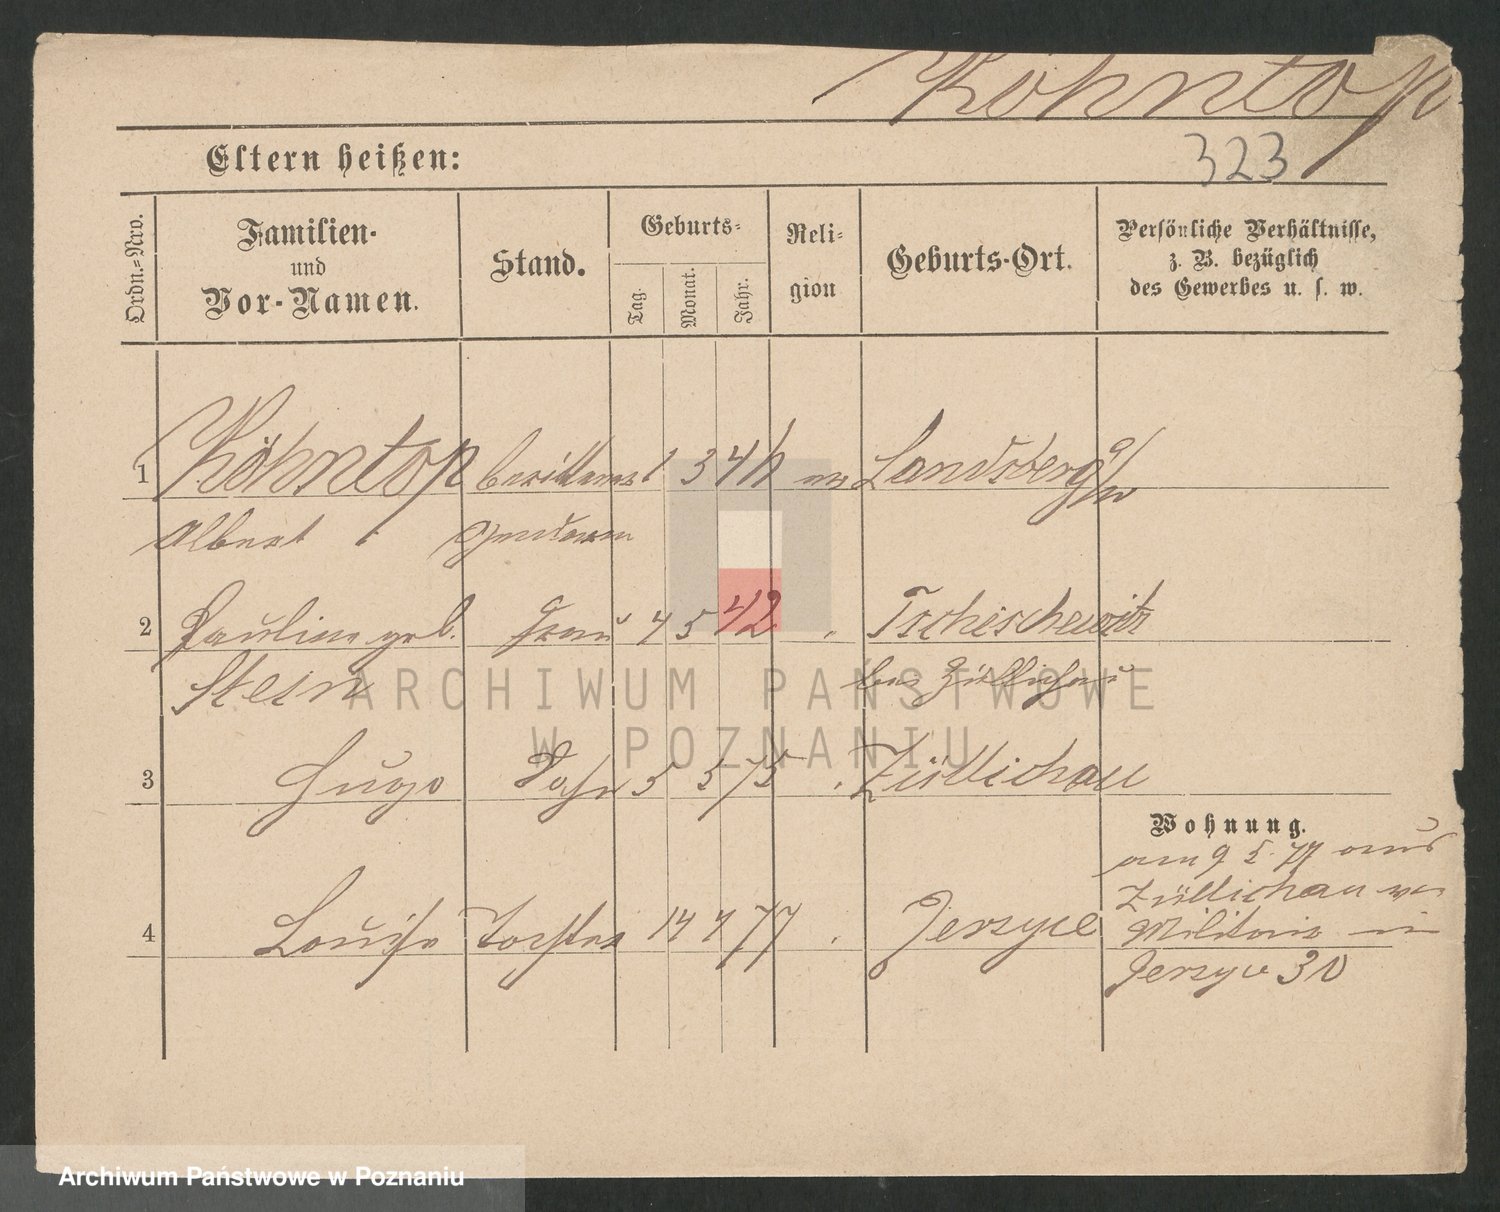 Köhntop
323
Eltern heißen:
Ordn.-Nro.
Familien-
und
Vor-Namen.
Stand.
Geburts-
Tag.
Monat.
Jahr.
Reli-
gion
Geburts-Ort.
Persönliche Verhältnisse,
z. B. bezüglich
des Gewerbes u. s. w.
1 Köhntop berittener 1 3 44 ev Landsberg a/w
Albert Gendarm
2 Pauline geb. Frau 4 5 42 Tschischewitz
Stein bei Züllichau
3 Hugo Sohn 5 5 75 Züllichau
Wohnung.
am 9 5. 77 aus
Züllichau vom
4 Louise Tochter 14 7 77 Jerzyce
Militair in
Jerzyce 30
ARCHIWUM PAŃSTWOWE
W POZNANIU
Archiwum Państwowe w Poznaniu